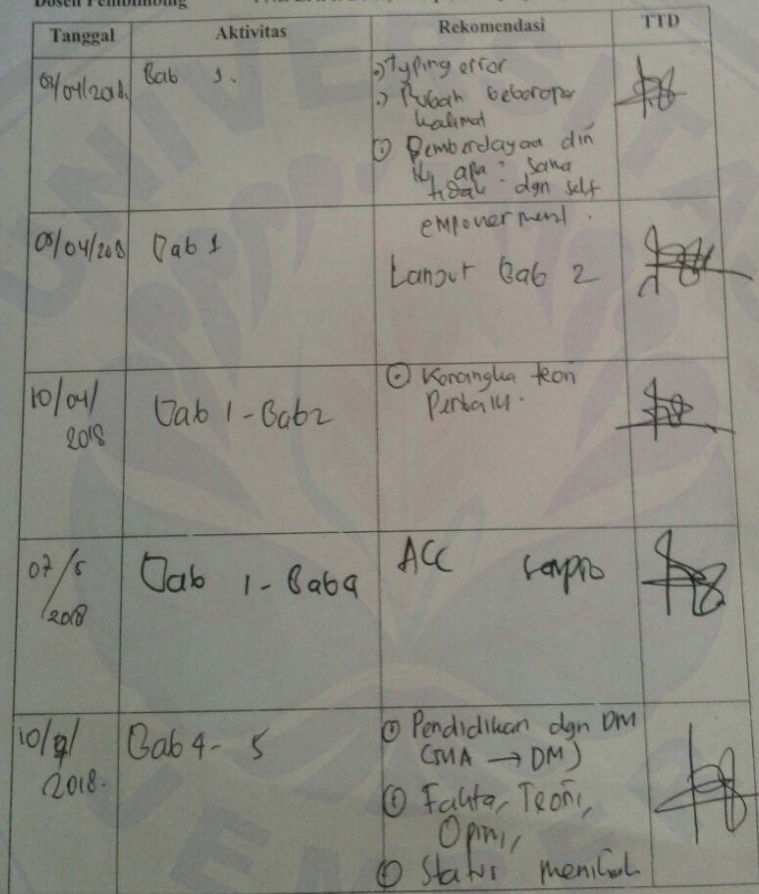 Dosen Pembimbing
Tanggal Aktivitas Rekomendasi TTD
Bab 1. Typing error
Rubah beberapa
kalimat
Pemberdayaan diri
apa : sama
tidak dgn self
empowerment.
Bab 1
Lanjut Bab 2
10/04/
2018
Bab 1 - Bab 2
Kerangka teori
07/5
/2018
Bab 1 - Bab 4
ACC sempro
10/7/
2018.
Bab 4 - 5
Pendidikan dgn DM
(SMA → DM)
Fakta, Teori,
Opini,
Status menikah
UNIVERSITA